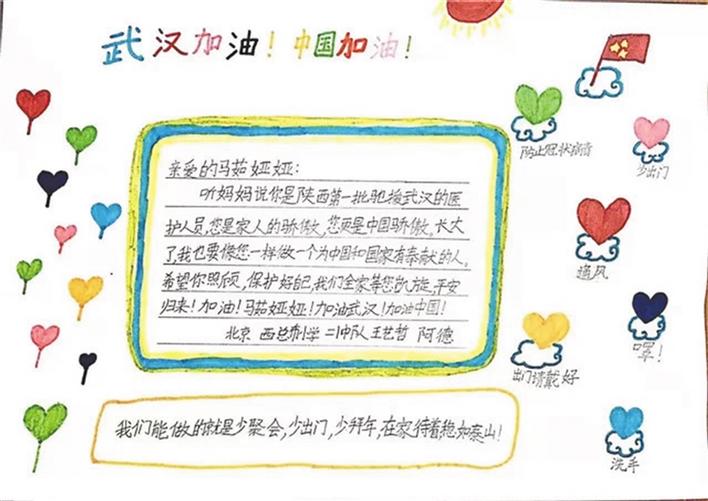 武汉加油！中国加油！
亲爱的马茹娅娅：
听妈妈说你是陕西第一批驰援武汉的医
护人员,您是家人的骄傲,您更是中国骄傲。长大
了我也要像您一样做一个为中国和国家有奉献的人。
希望你照顾,保护好自己,我们全家等您凯旋,平安
归来！加油！马茹娅娅！加油武汉！加油中国！
北京 中队 王艺哲 阿德
防止冠状病毒
少出门
通风
出门请戴好
口罩！
洗手
我们能做的就是少聚会,少出门,少拜年,在家待着稳如泰山！